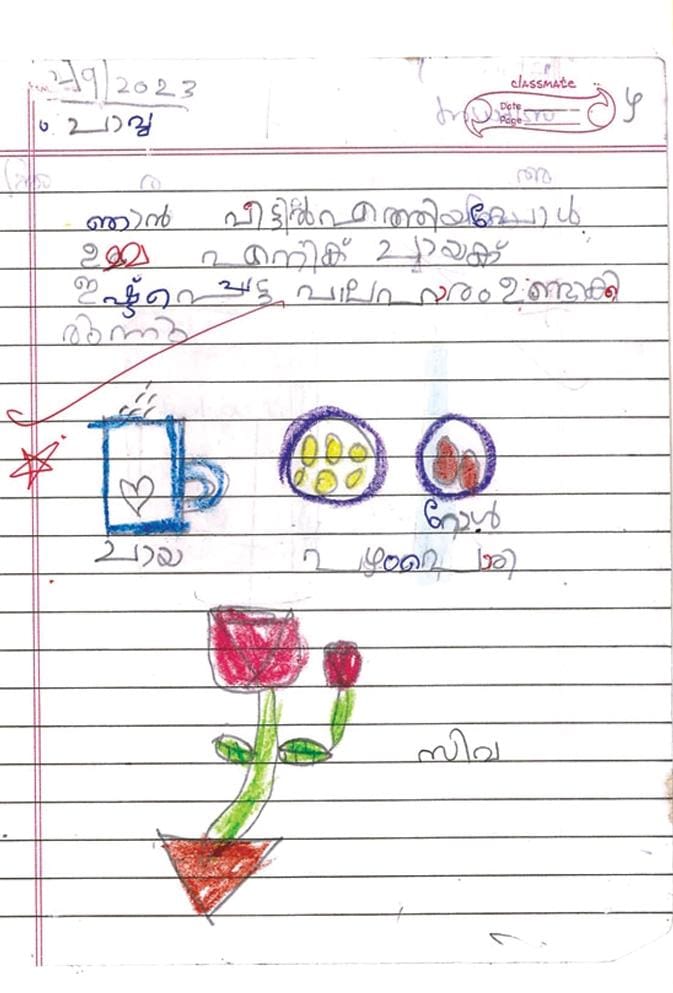 4/9/2023
ചൊവ്വ
classmate
Date
Page
ഞാൻ വീട്ടിൽ എത്തിയപ്പോൾ
ഉമ്മ എനിക് ചായക്ക്
ഇഷ്ട്ടപ്പെട്ട പലഹാരം ഉണ്ടാക്കി
തന്നു
റോൾ
ചായ പഴംപൊരി
സിവ